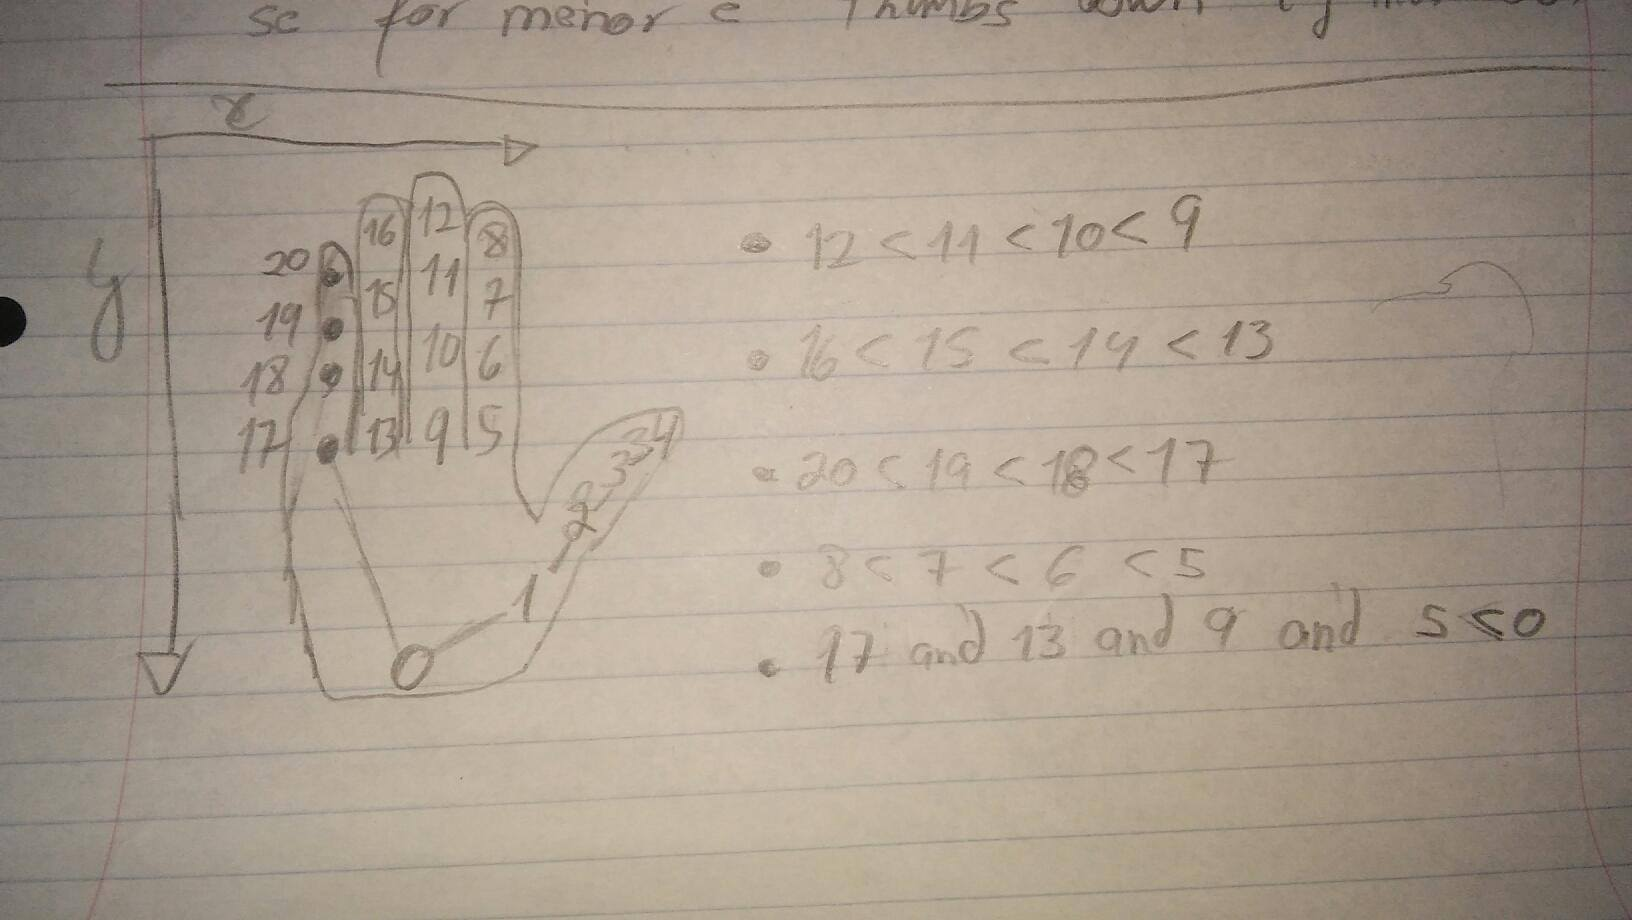 se for menor e Thumbs down
x
y
20 16 12 8
19 15 11 7
18 14 10 6
17 13 9 5
4
3
2
1
0
• 12 < 11 < 10 < 9
• 16 < 15 < 14 < 13
• 20 < 19 < 18 < 17
• 8 < 7 < 6 < 5
• 17 and 13 and 9 and 5 < 0